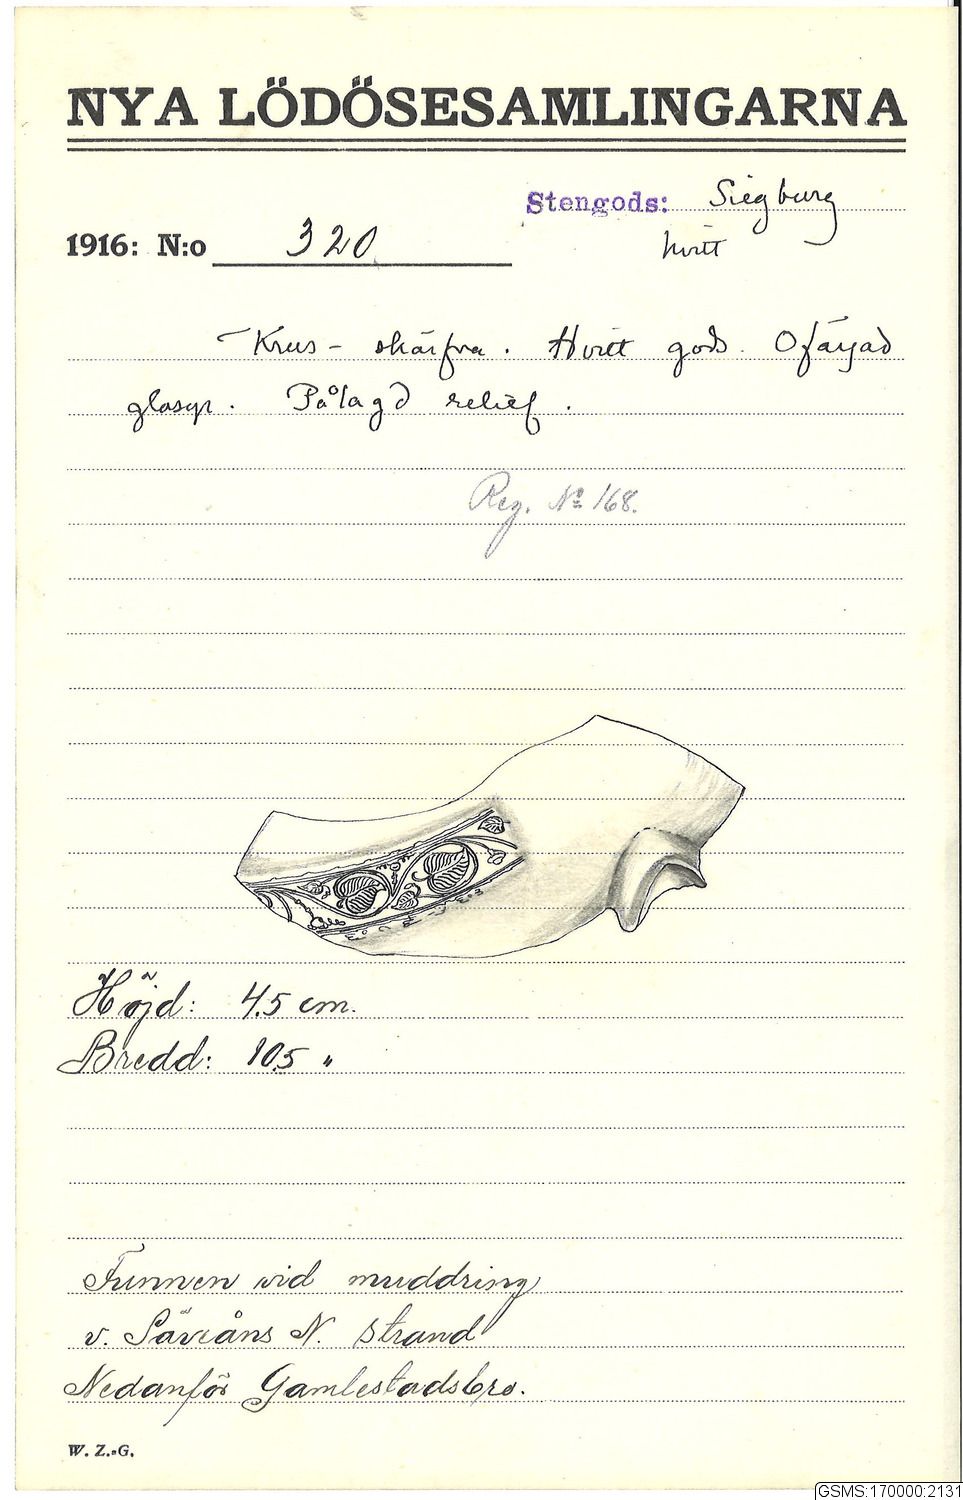 NYA LÖDÖSESAMLINGARNA
Stengods: Siegburg
1916: N:o 320
hvitt
Krus-skärfva. Hvitt gods. Ofärgad
glasyr. Pålagd relief.
Reg. No 168.
Höjd: 4,5 cm.
Bredd: 10,5 "
Funnen vid muddring
v. Säveåns N. strand
Nedanför Gamlestadsbro.
W. Z.-G.
GSMS:170000:2131